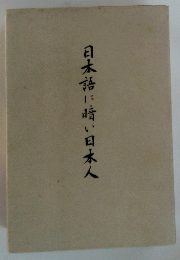 日本語に暗い日本人